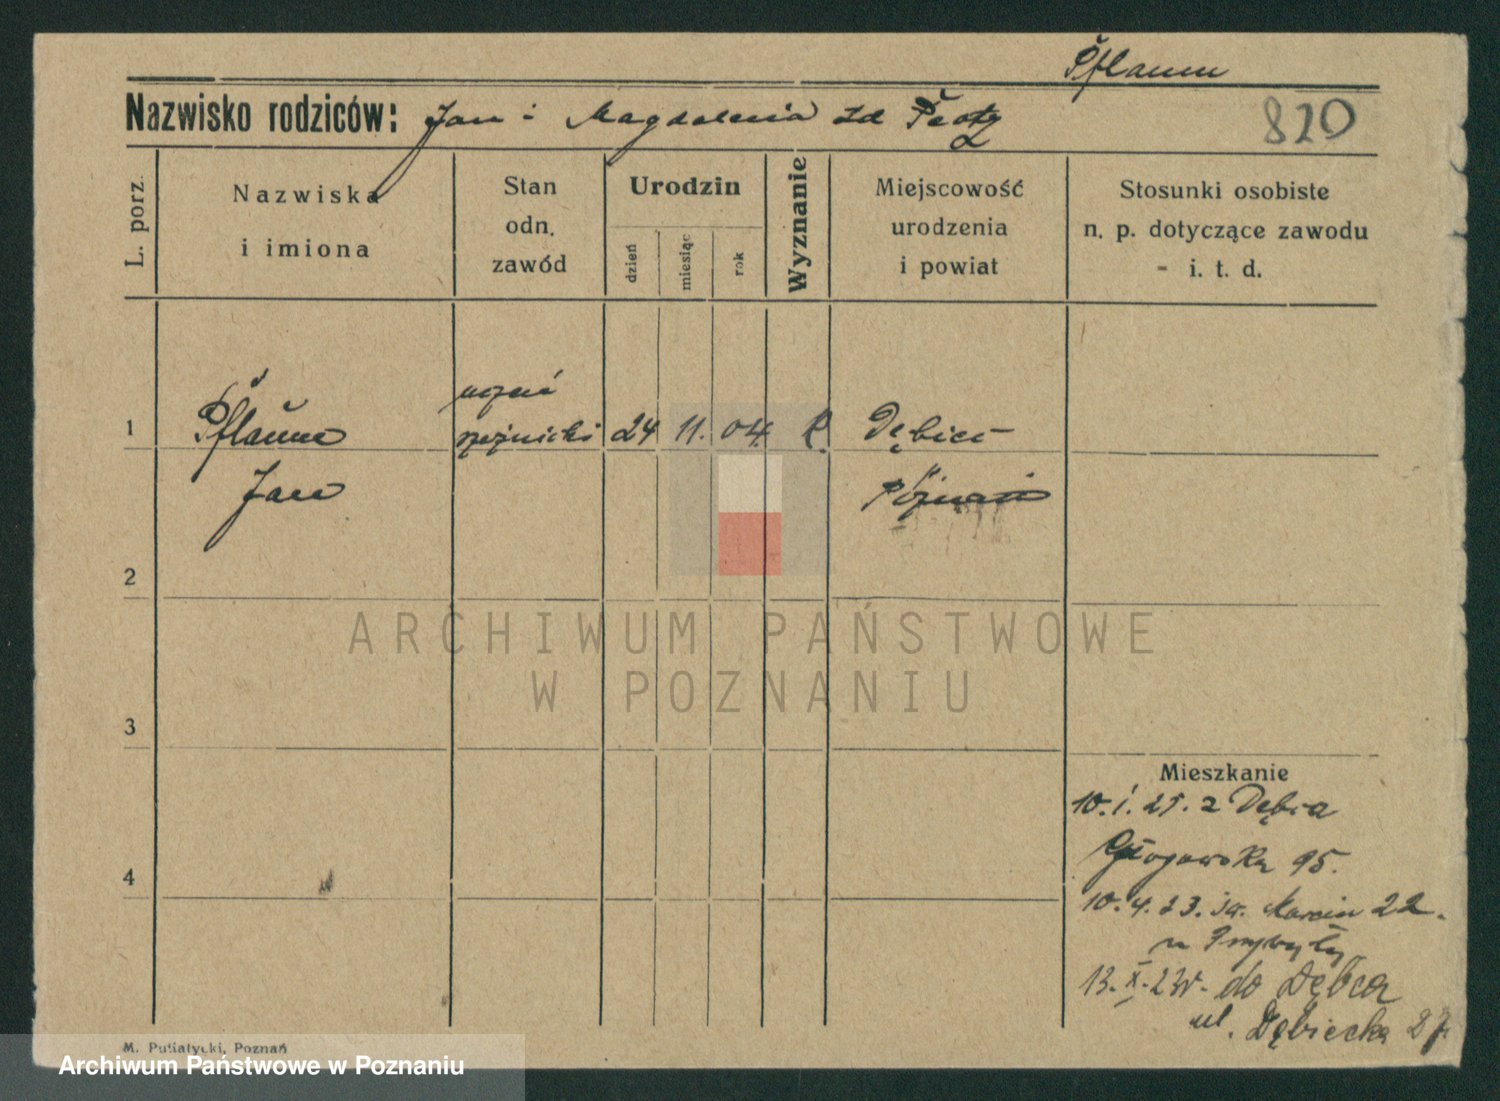 Pflaum
Nazwisko rodziców: Jan i Magdalena zd
820
L. porz.
Nazwiska
i imiona
Stan
odn.
zawód
Urodzin
dzień
miesiąc
rok
Wyznanie
Miejscowość
urodzenia
i powiat
Stosunki osobiste
n. p. dotyczące zawodu
- i. t. d.
1
Pflaum
Jan
uczeń
rzeźnicki
24 11. 04. k.
Dębiec
Poznań
2
3
4
ARCHIWUM PAŃSTWOWE
W POZNANIU
Mieszkanie
10. 1. 21. z Dębca
Głogowska 95.
10. 4. 23. św. Marcin 22.
u
13. X. 23r. do Dębca
ul. Dębiecka 27.
M. Putiatycki, Poznań
Archiwum Państwowe w Poznaniu